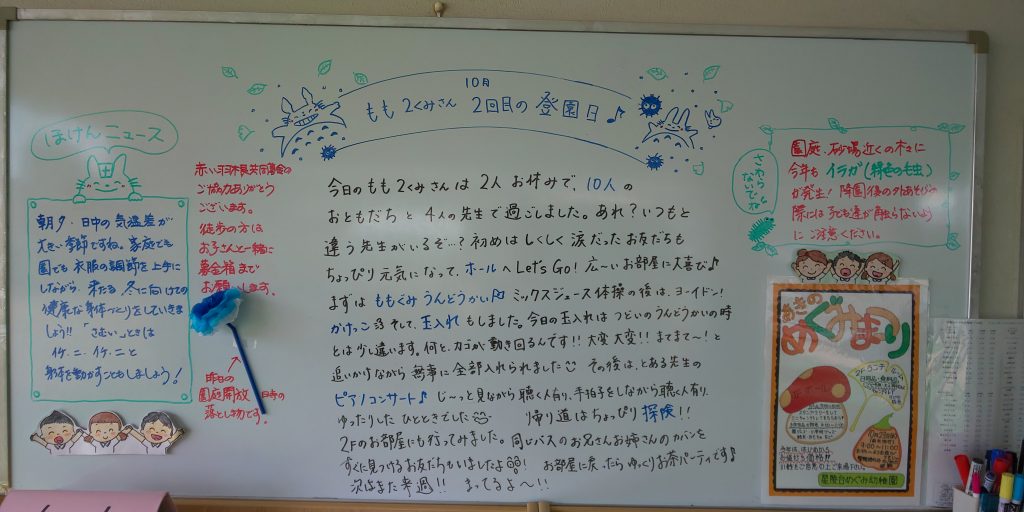 10月
もも2くみさん 2回目の登園日♪
ほけんニュース
朝夕・日中の気温差が
大きい季節ですね。家庭でも
園でも衣服の調節を上手に
しながら、来たる冬に向けての
健康な身体づくりをしていきま
しょう!! 「さむい」ときは
イチ、ニ、イチ、ニと
身体を動かすこともしましょう!
赤い羽根共同募金の
ご協力ありがとう
ございます。
徒歩の方は
お子さんと一緒に
募金箱まで
お願いします。
昨日の
園庭開放
の時の
落とし物です。
今日のもも2くみさんは2人お休みで、10人の
おともだちと4人の先生で過ごしました。あれ?いつもと
違う先生がいるぞ…?初めはしくしく涙だったお友だちも
ちょっぴり元気になって、ホールへLet's Go! 広ーいお部屋に大喜び♪
まずはももぐみうんどうかい♫ ミックスジュース体操の後は、ヨーイドン!
かけっこ そして、玉入れもしました。今日の玉入れはつどいのうんどうかいの時
とは少し違います。何と、カゴが動き回るんです!! 大変大変!! まてまて〜!と
追いかけながら無事に全部入れられました その後は、とある先生の
ピアノコンサート♪ じ〜っと見ながら聴く人有り、手拍子をしながら聴く人有り、
ゆったりしたひとときでした 帰り道はちょっぴり探検!!
2Fのお部屋にも行ってみました。同じバスのお兄さんお姉さんのカバンを
すぐに見つけるお友だちもいましたよ!! お部屋に戻ったらゆっくりお茶パーティです♪
次はまた来週!! まってるよ〜!!
さわらないでね
園庭、砂場近くの木に
今年もイラガ(緑色の毛虫)
が発生!降園後の外あそびの
際には子ども達が触らないよう
にご注意ください。
あきの
めぐみまつり
星陵台めぐみ幼稚園